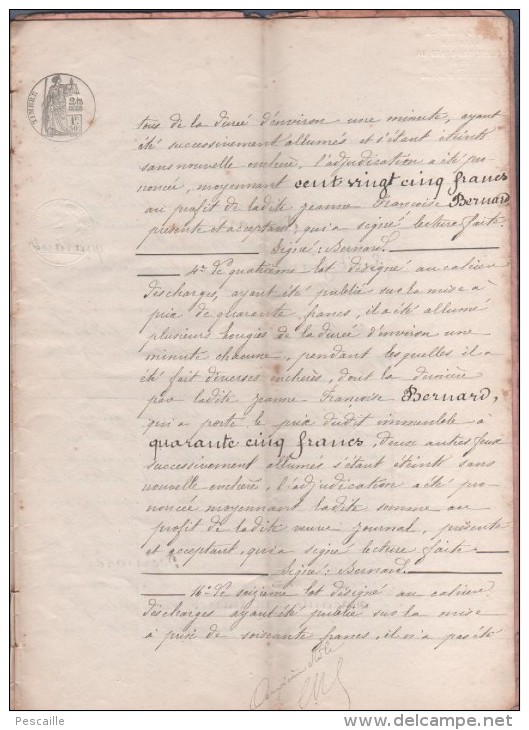 TIMBRE
tous de la durée d'environ une minute, ayant
été successivement allumés et s'étant éteints
sans nouvelle enchère, l'adjudication a été pro-
noncée, moyennant cent vingt cinq francs
au profit de ladite jeanne Françoise Bernard
présente et acceptant, qui a signé lecture faite.
Signé: Bernard.
4° Le quatrième lot désigné au cahier
des charges, ayant été publié sur la mise à
prix de quarante francs, il a été allumé
plusieurs bougies de la durée d'environ une
minute chacune, pendant lesquelles il a
été fait diverses enchères, dont la dernière
par ladite jeanne Françoise Bernard,
qui a porté le prix dudit immeuble à
quarante cinq francs, deux autres feux
successivement allumés s'étant éteints sans
nouvelle enchère, l'adjudication a été pro-
noncée moyennant ladite somme au
profit de ladite veuve Journal, présente
et acceptant, qui a signé lecture faite
Signé: Bernard.
16° Le seizième lot désigné au cahier
des charges ayant été publié sur la mise
à prix de soixante francs, il n'a pas été
Pescaille
www.delcampe.net